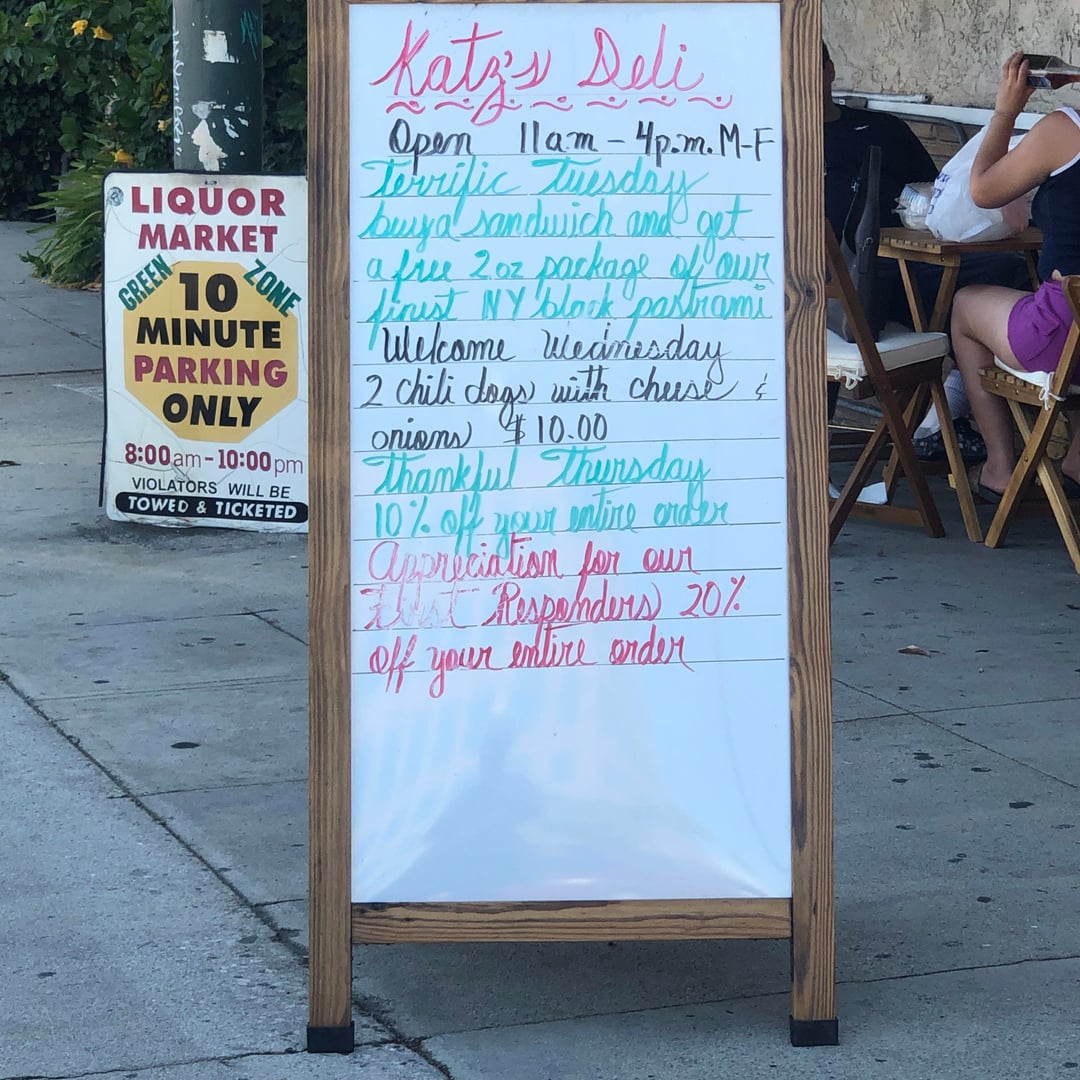 Katz's Deli
Open 11am - 4p.m. M-F
Terrific Tuesday
buy a sandwich and get
a free 2oz package of our
finest NY black pastrami
Welcome Wednesday
2 chili dogs with cheese &
onions $10.00
Thankful Thursday
10% off your entire order
Appreciation for our
First Responders 20%
off your entire order
LIQUOR
MARKET
GREEN ZONE
10
MINUTE
PARKING
ONLY
8:00am - 10:00pm
VIOLATORS WILL BE
TOWED & TICKETED